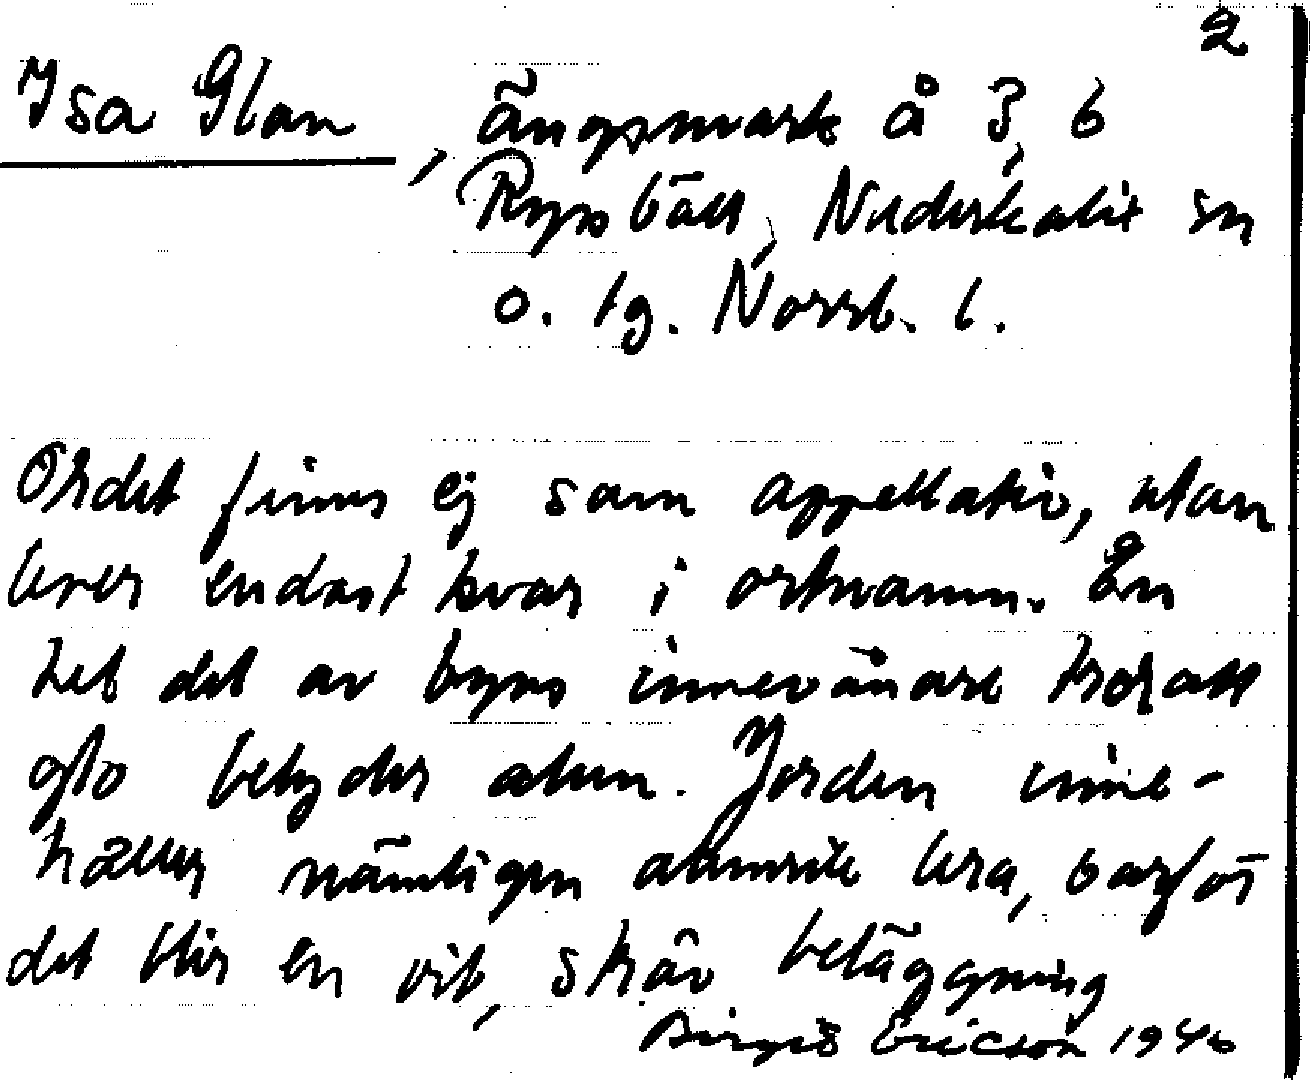 2
Isa Glan, ängsmark å 3, 6
Ryssbält, Nederkalix sn
o. tg. Norrb. l.
Ordet finnes ej som appellativ, utan
lever endast kvar i ortnamn. En
del av byns innevånare tror att
glo betyder alun. Jorden inne-
håller nämligen alunrik lera, varför
det blir en vit, sträv beläggning
Birgit Ericson 1946